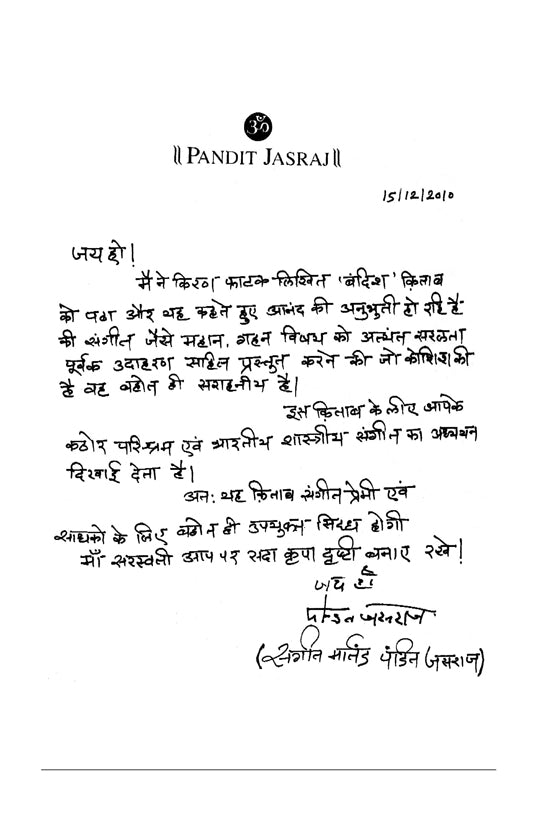 ॐ
॥ PANDIT JASRAJ ॥
15/12/2010
जय हो!
मैने किरण फाटक लिखित 'बंदिश' किताब
को पढा और यह कहते हुए आनंद की अनुभुती हो रही है
की संगीत जैसे महान, गहन विषय को अत्यंत सरलता
पूर्वक उदाहरण सहित प्रस्तुत करने की जो कोशिश की
है वह बहोत ही सराहनीय है।
इस किताब के लीए आपके
कठोर परिश्रम एवं भारतीय शास्त्रीय संगीत का अध्ययन
दिखाई देता है।
अतः यह किताब संगीत प्रेमी एवं
साधको के लिए बहोत ही उपयुक्त सिध्ध होगी
माँ सरस्वती आप पर सदा कृपा दृष्टी बनाए रखे!
जय हो
पंडित जसराज
(संगीत मार्तंड पंडित जसराज)